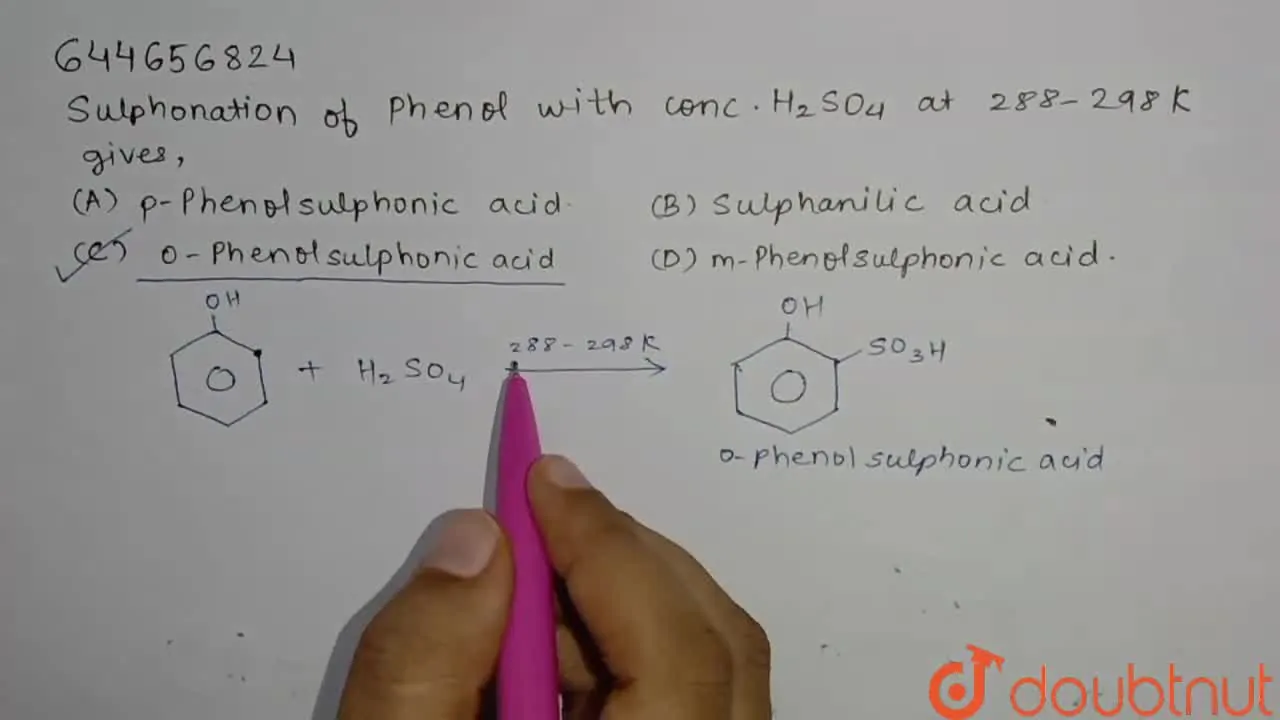 644656824
Sulphonation of Phenol with conc. H₂SO₄ at 288-298K
gives,
(A) p-Phenolsulphonic acid. (B) Sulphanilic acid
(C) o-Phenolsulphonic acid (D) m-Phenolsulphonic acid.
OH OH
288-298K SO₃H
+ H₂SO₄
o-phenol sulphonic acid
doubtnut